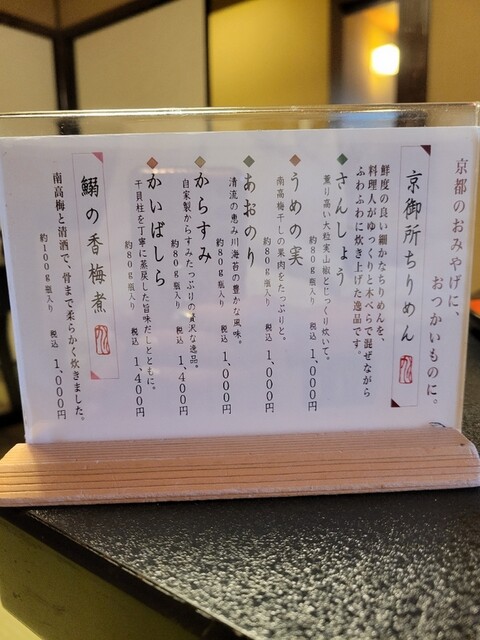 京都のおみやげに、
おつかいものに。
京御所ちりめん
鮮度の良い細かなちりめんを、
料理人がゆっくりと木べらで混ぜながら
ふわふわに炊き上げた逸品です。
さんしょう
薫り高い大粒実山椒とじっくり炊いて。
約80g瓶入り 税込 1,000円
うめの実
南高梅干しの果肉をたっぷりと。
約80g瓶入り 税込 1,000円
あおのり
清流の恵み川海苔の豊かな風味。
約80g瓶入り 税込 1,000円
からすみ
自家製からすみたっぷりの贅沢な逸品。
約80g瓶入り 税込 1,400円
かいばしら
干貝柱を丁寧に蒸戻した旨味だしとともに。
約80g瓶入り 税込 1,400円
鰯の香梅煮
南高梅と清酒で、骨まで柔らかく炊きました。
約100g瓶入り 税込 1,000円